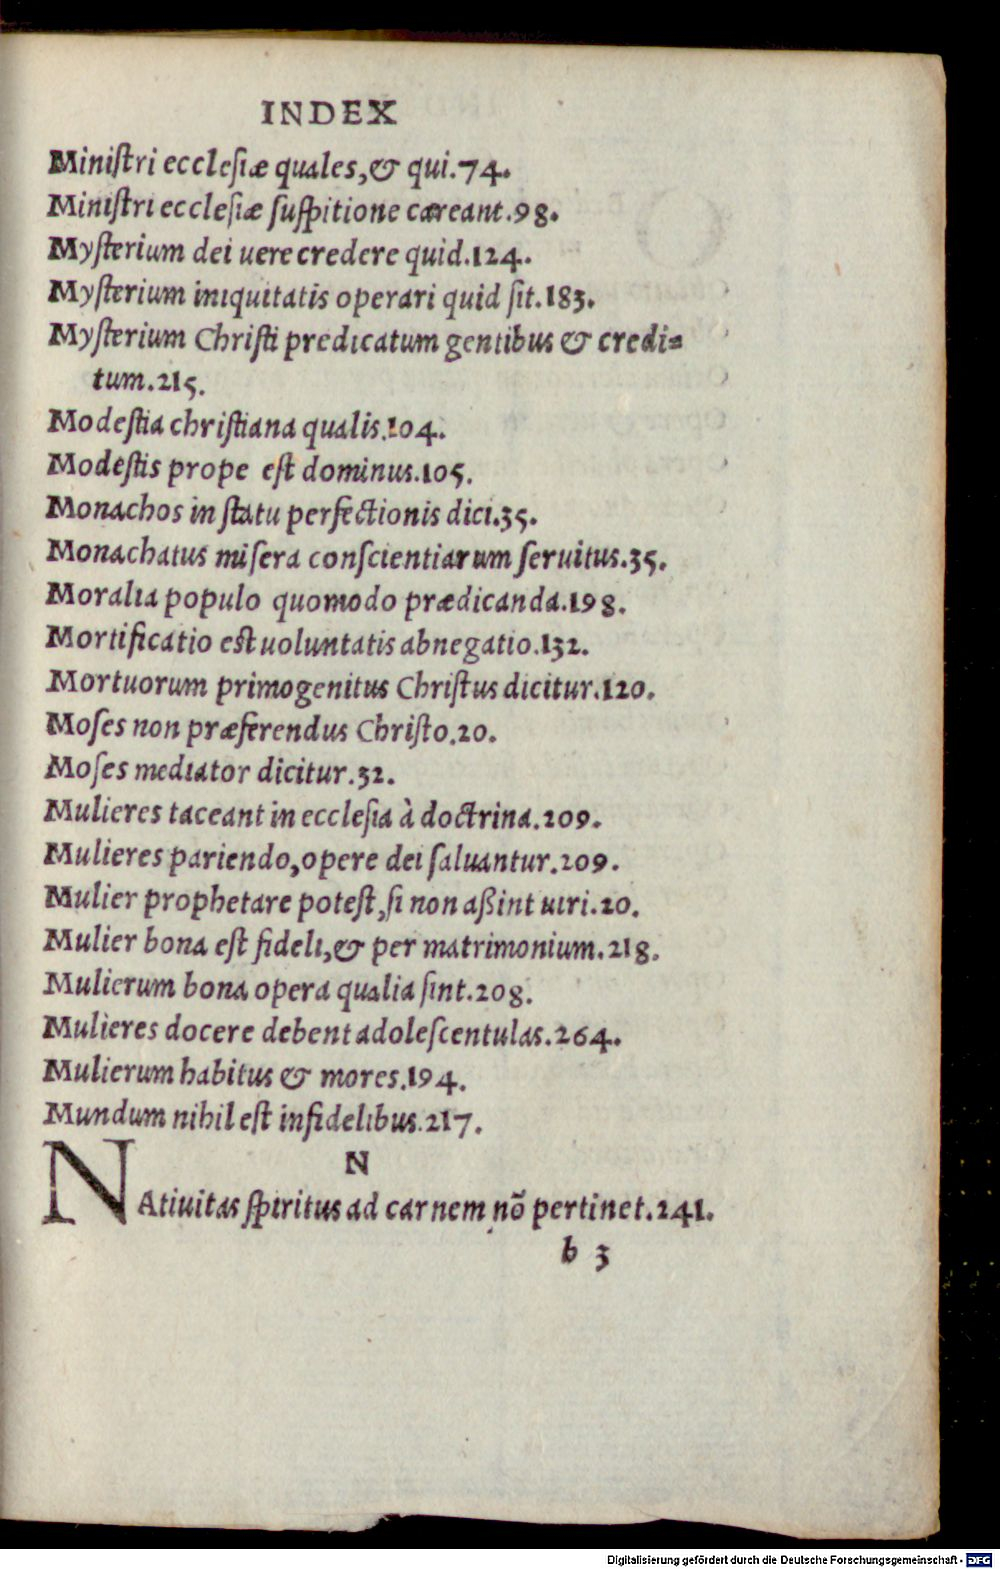 INDEX
Miniſtri eccleſiæ quales,& qui.74.
Miniſtri eccleſiæ ſuſpitione careant.98.
Myſterium dei uere credere quid.124.
Myſterium iniquitatis operari quid ſit.183.
Myſterium Chriſti predicatum gentibus & credi=
tum.215.
Modeſtia chriſtiana qualis.104.
Modeſtis prope eſt dominus.105.
Monachos in ſtatu perfectionis dici.35.
Monachatus miſera conſcientiarum ſeruitus.35.
Moralia populo quomodo prædicanda.198.
Mortificatio eſt uoluntatis abnegatio.132.
Mortuorum primogenitus Chriſtus dicitur.120.
Moſes non præferendus Chriſto.20.
Moſes mediator dicitur.32.
Mulieres taceant in eccleſia à doctrina.209.
Mulieres pariendo,opere dei ſaluantur.209.
Mulier prophetare poteſt,ſi non aßint uiri.20.
Mulier bona eſt fideli,& per matrimonium.218.
Mulierum bona opera qualia ſint.208.
Mulieres docere debent adoleſcentulas.264.
Mulierum habitus & mores.194.
Mundum nihil eſt infidelibus.217.
N
NAtiuitas ſpiritus ad carnem nõ pertinet.241.
b 3
Digitalisierung gefördert durch die Deutsche Forschungsgemeinschaft - DFG